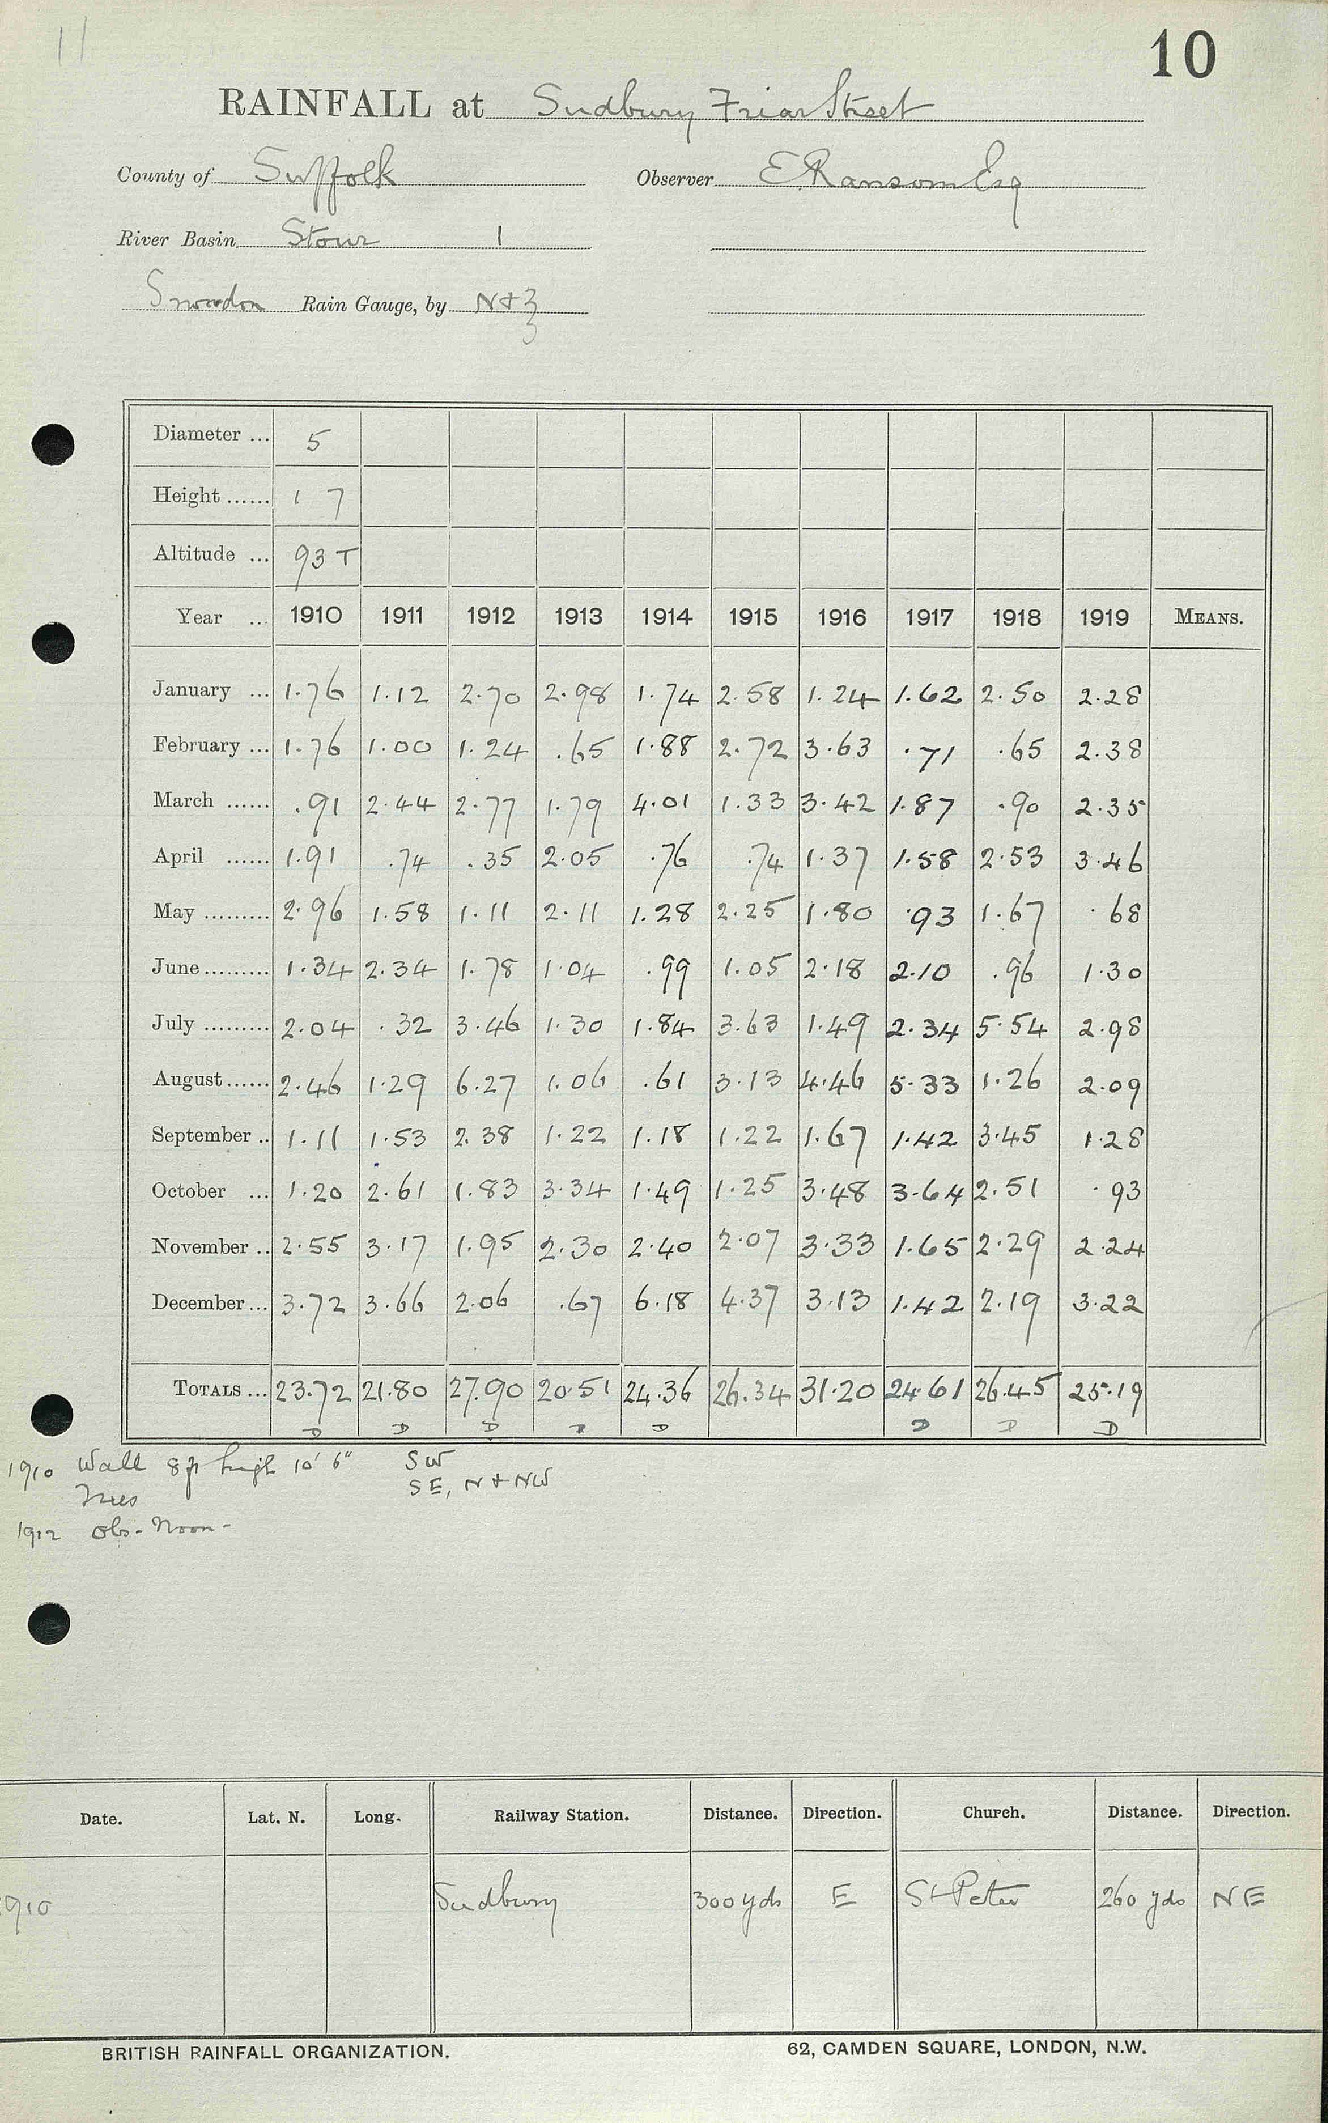 11
10
RAINFALL at Sudbury Friar Street
County of Suffolk Observer E Ransom Esq
River Basin Stour 1
Snowdon Rain Gauge, by N+Z
Diameter ... 5
Height ...... 1 7
Altitude ... 93 T
Year ... 1910 1911 1912 1913 1914 1915 1916 1917 1918 1919 MEANS.
January ... 1.76 1.12 2.70 2.98 1.74 2.58 1.24 1.62 2.50 2.28
February ... 1.76 1.00 1.24 .65 1.88 2.72 3.63 .71 .65 2.38
March ...... .91 2.44 2.77 1.79 4.01 1.33 3.42 1.87 .90 2.35
April ...... 1.91 .74 .35 2.05 .76 .74 1.37 1.58 2.53 3.46
May ......... 2.96 1.58 1.11 2.11 1.28 2.25 1.80 .93 1.67 .68
June ......... 1.34 2.34 1.78 1.04 .99 1.05 2.18 2.10 .96 1.30
July ......... 2.04 .32 3.46 1.30 1.84 3.63 1.49 2.34 5.54 2.98
August ...... 2.46 1.29 6.27 1.06 .61 3.13 4.46 5.33 1.26 2.09
September .. 1.11 1.53 2.38 1.22 1.18 1.22 1.67 1.42 3.45 1.28
October ... 1.20 2.61 1.83 3.34 1.49 1.25 3.48 3.64 2.51 .93
November .. 2.55 3.17 1.95 2.30 2.40 2.07 3.33 1.65 2.29 2.24
December ... 3.72 3.66 2.06 .67 6.18 4.37 3.13 1.42 2.19 3.22
TOTALS ... 23.72 21.80 27.90 20.51 24.36 26.34 31.20 24.61 26.45 25.19
D D D D D D D D
1910 Wall 8 ft high 10' 6" SW
Trees SE, N + NW
1912 Obs - Noon -
Date. Lat. N. Long. Railway Station. Distance. Direction. Church. Distance. Direction.
1910 Sudbury 300 yds E St Peter 260 yds NE
BRITISH RAINFALL ORGANIZATION. 62, CAMDEN SQUARE, LONDON, N.W.